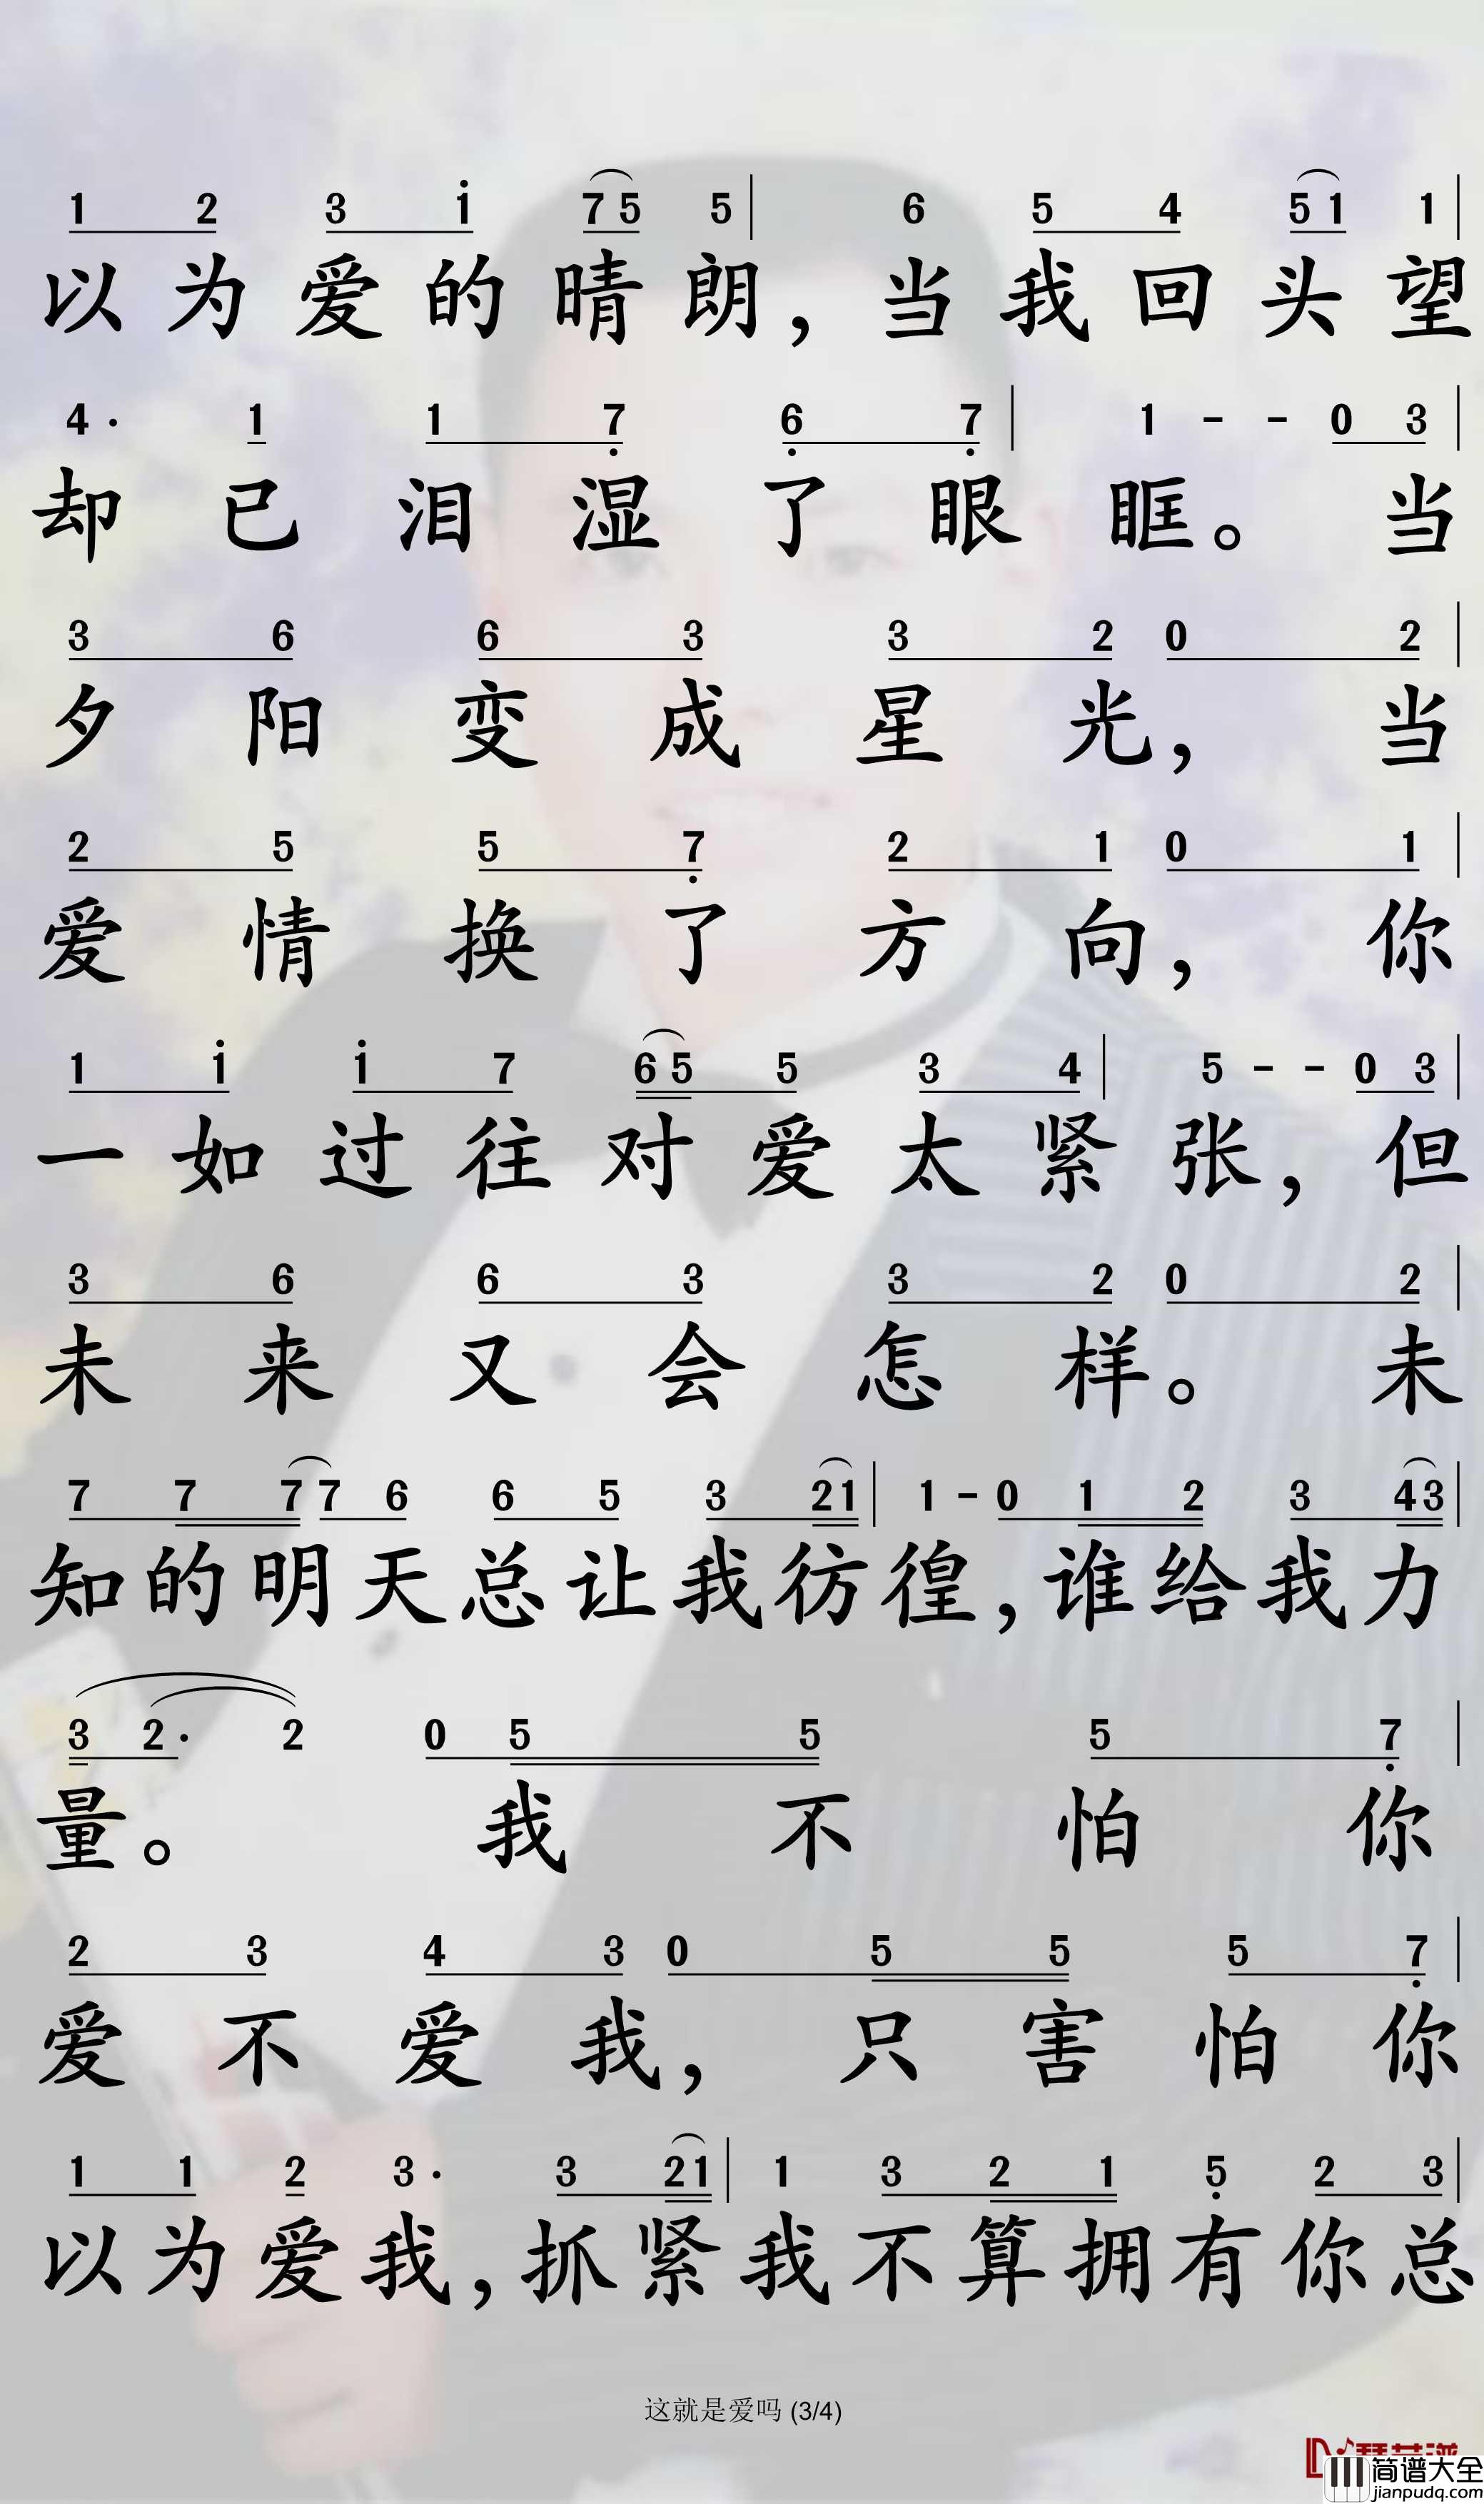 1 2 3 1 7 5 5 | 6 5 4 5 1 1 |
以为爱的晴朗，当我回头望
4 · 1 1 7 6 7 | 1 - - 0 3 |
却已泪湿了眼眶。当
3 6 6 3 3 2 0 2 |
夕阳变成星光，当
2 5 5 7 2 1 0 1 |
爱情换了方向，你
1 1 1 7 6 5 5 3 4 | 5 - - 0 3 |
一如过往对爱太紧张，但
3 6 6 3 3 2 0 2 |
未来又会怎样。未
7 7 7 7 6 6 5 3 2 1 | 1 - 0 1 2 3 4 3 |
知的明天总让我彷徨，谁给我力
3 2 · 2 0 5 5 5 7 |
量。我不怕你
2 3 4 3 0 5 5 5 7 |
爱不爱我，只害怕你
1 1 2 3 · 3 2 1 | 1 3 2 1 5 2 3 |
以为爱我，抓紧我不算拥有你总
这就是爱吗 (3/4)
简谱大全
jianpudq.com